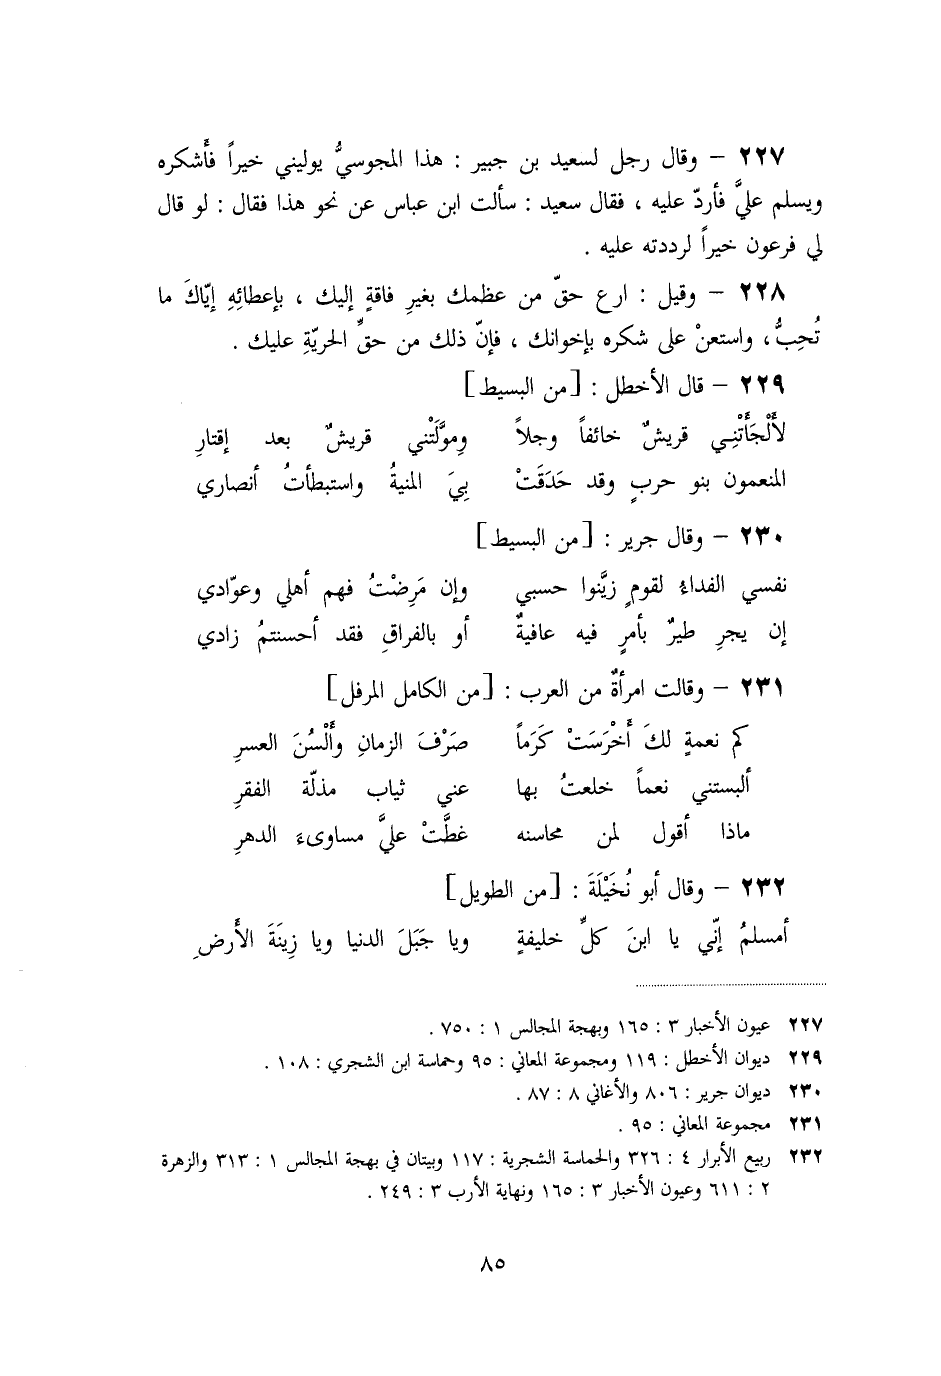 ٢٢٧ – وقال رجل لسعيد بن جبير : هذا المجوسيُّ يوليني خيراً فأَشكره
ويسلم عليَّ فأردّ عليه ، فقال سعيد : سألت ابن عباس عن نحو هذا فقال : لو قال
لي فرعون خيراً لرددته عليه .
٢٢٨ – وقيل : ارع حقّ من عظمك بغيرِ فاقةٍ إليك ، بإعطائِهِ إيّاكَ ما
تُحِبُّ، واستعنْ على شكره بإخوانك ، فإنّ ذلك من حقِّ الحريّةِ عليك .
٢٢٩ – قال الأخطل : [من البسيط]
لأَلْجَأَتْنِي قريشٌ خائفاً وجلاً وموَّلَتْني قريشٌ بعد إقتارِ
المنعمون بنو حربٍ وقد حَدَقَتْ بِيَ المنيةُ واستبطأتُ أنصاري
٢٣٠ – وقال جرير : [من البسيط]
نفسي الفداءُ لقومٍ زيَّنوا حسبي وإن مَرِضْتُ فهم أهلي وعوّادي
إن يجرِ طيرٌ بأمرٍ فيه عافيةٌ أو بالفراقِ فقد أحسنتمُ زادي
٢٣١ – وقالت امرأةٌ من العرب : [من الكامل المرفل]
كم نعمةٍ لكَ أَخْرَسَتْ كَرَماً صَرْفَ الزمانِ وأَلْسُنَ العسرِ
ألبستني نعماً خلعتُ بها عني ثياب مذلّة الفقرِ
ماذا أقول لمن محاسنه غطَّتْ عليَّ مساوىء الدهرِ
٢٣٢ – وقال أبو نُخَيْلَةَ : [من الطويل]
أمسلمُ إنّي يا ابنَ كلِّ خليفةٍ ويا جَبَلَ الدنيا ويا زِينَةَ الأَرضِ
٢٢٧ عيون الأخبار ٣ : ١٦٥ وبهجة المجالس ١ : ٧٥٠ .
٢٢٩ ديوان الأخطل : ١١٩ ومجموعة المعاني : ٩٥ وحماسة ابن الشجري : ١٠٨ .
٢٣٠ ديوان جرير : ٨٠٦ والأغاني ٨ : ٨٧ .
٢٣١ مجموعة المعاني : ٩٥ .
٢٣٢ ربيع الأبرار ٤ : ٣٢٦ والحماسة الشجرية : ١١٧ وبيتان في بهجة المجالس ١ : ٣١٣ والزهرة
٢ : ٦١١ وعيون الأخبار ٣ : ١٦٥ ونهاية الأرب ٣ : ٢٤٩ .
٨٥